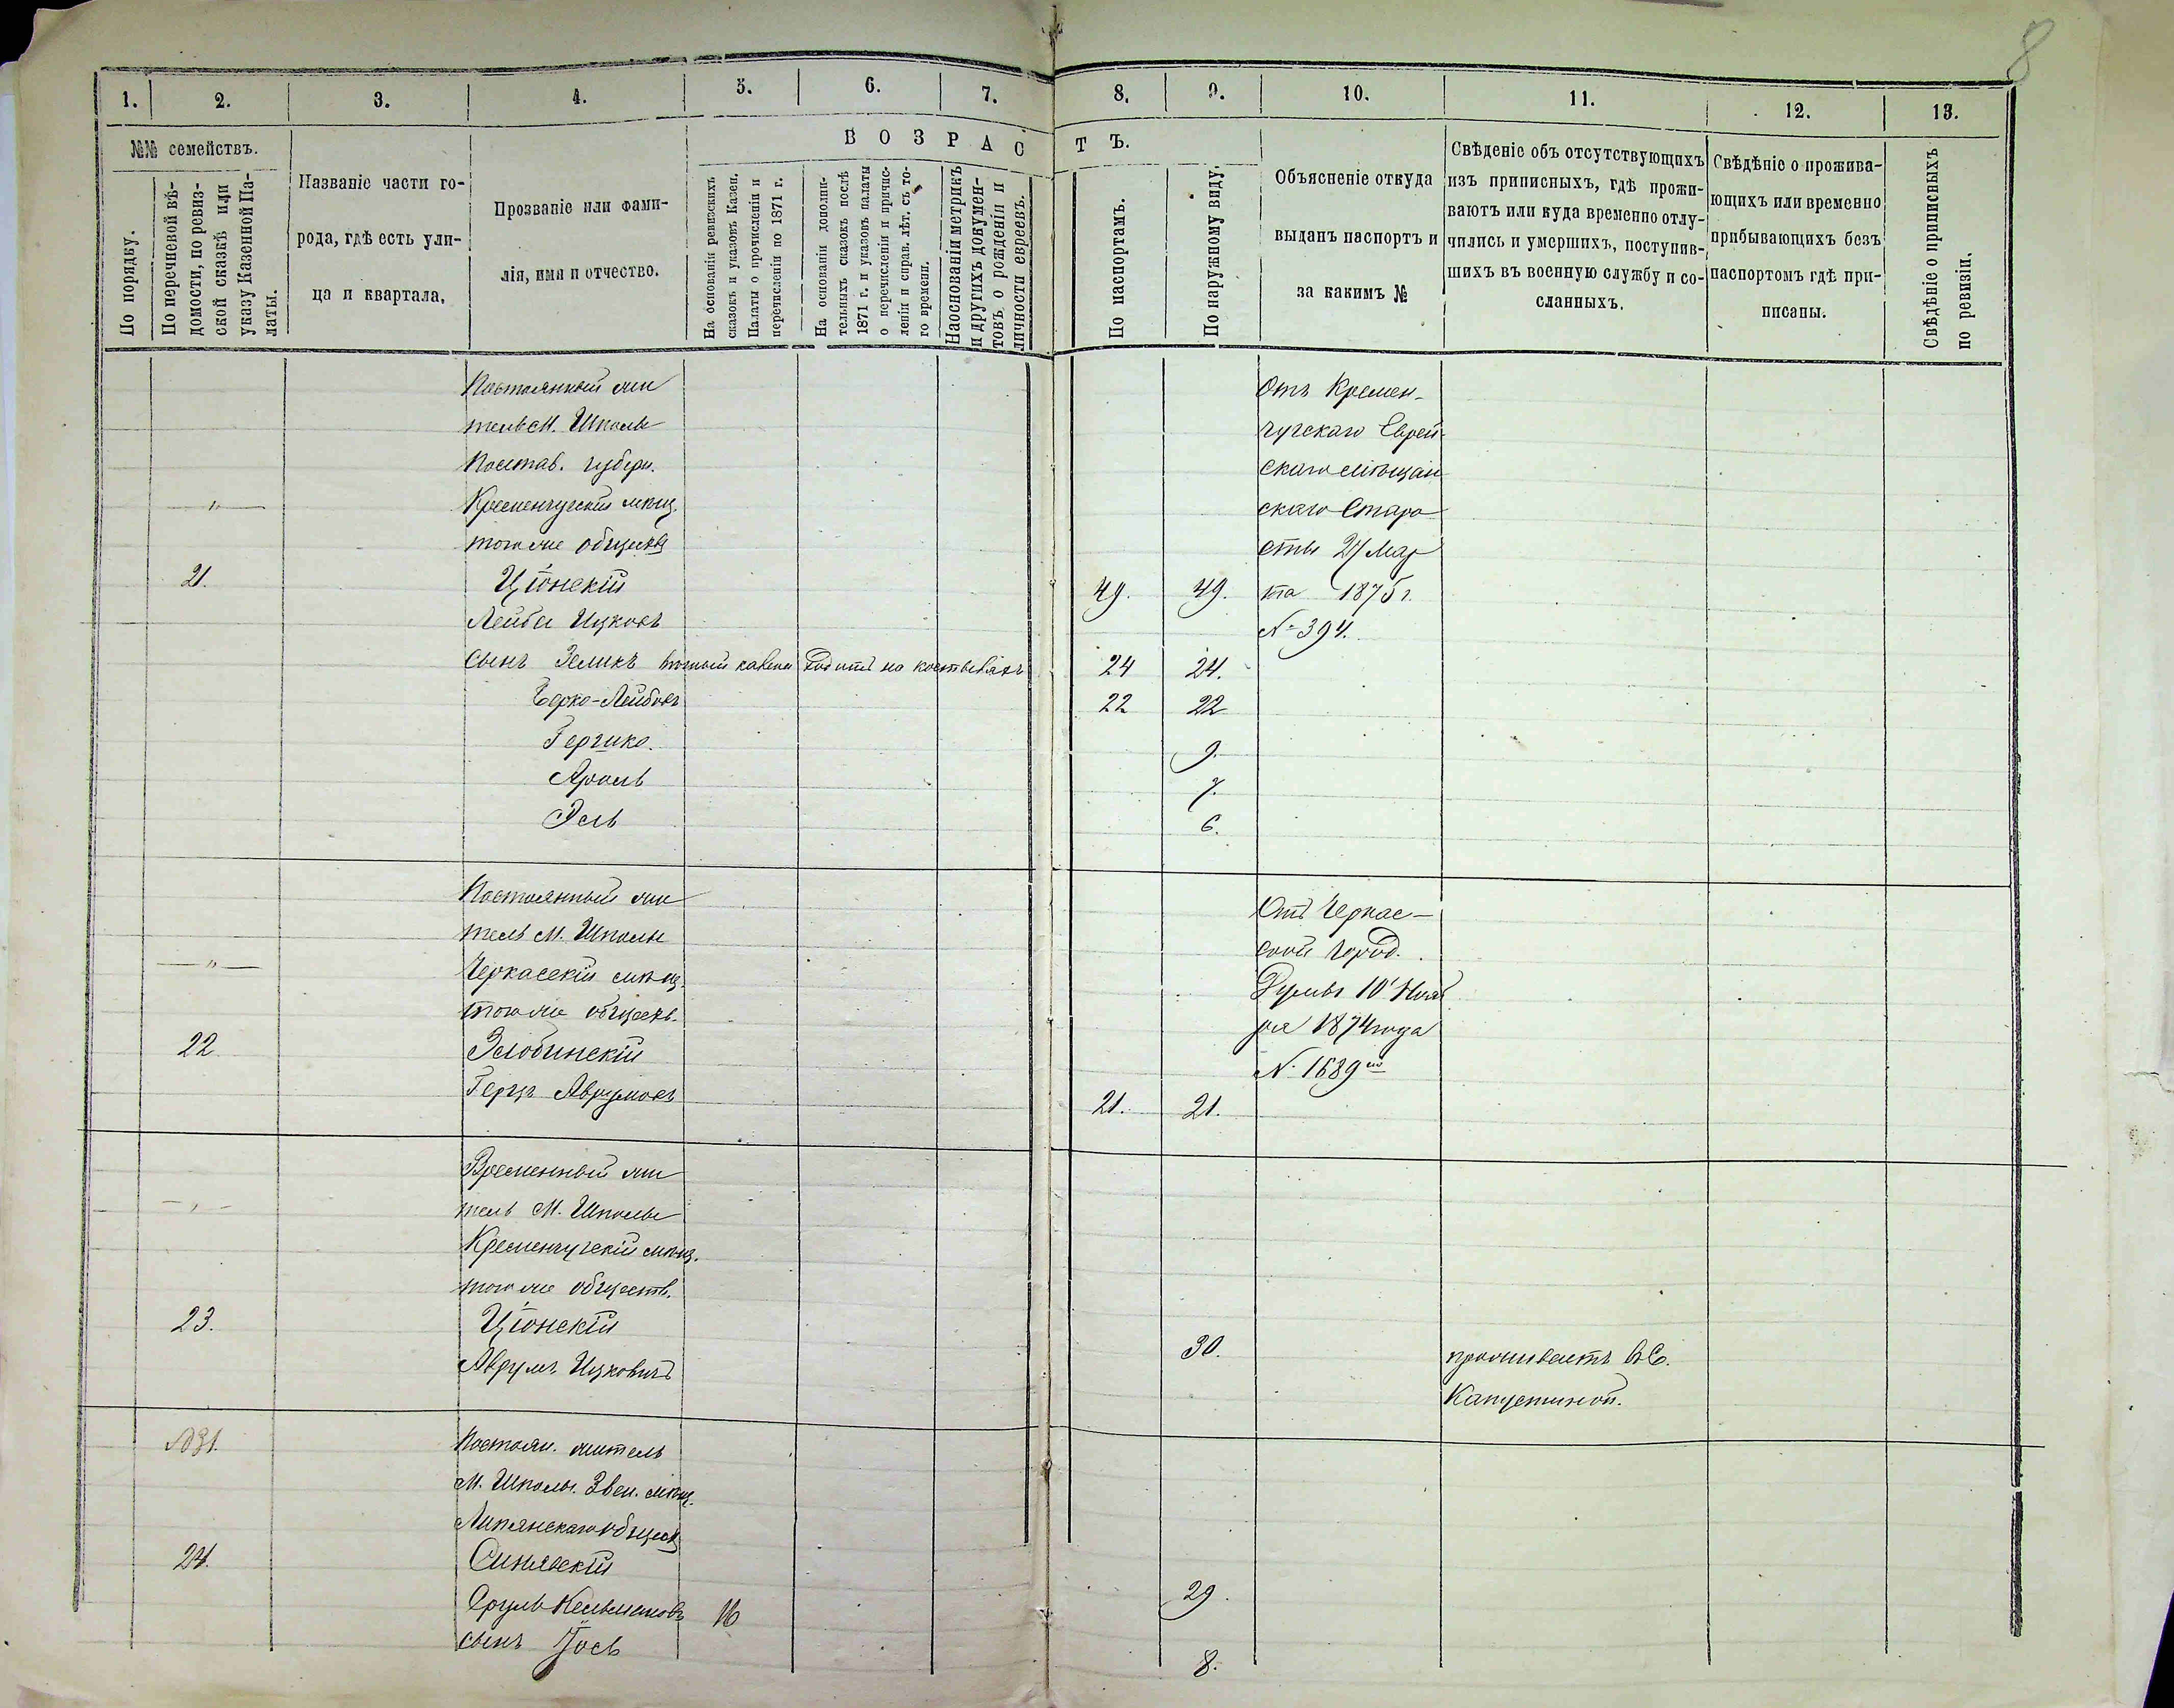 8
1. 2. 3. 4. 5. 6. 7. 8. 9. 10. 11. 12. 13.
№№ семействъ.
По порядку.
По перечневой вѣ-
домости, по ревиз-
ской сказкѣ или
указу Казенной Па-
латы.
Названіе части го-
рода, гдѣ есть ули-
ца и квартала.
Прозваніе или фами-
лія, имя и отчество.
ВОЗРАСТЪ.
На основаніи ревизскихъ
сказокъ и указовъ Казен.
Палаты о прочисленіи и
перечисленіи по 1871 г.
На основаніи дополни-
тельныхъ сказокъ послѣ
1871 г. и указовъ палаты
о перечисленіи и причис-
леніи и справ. лѣт. съ то-
го времени.
На основаніи метрикъ
и другихъ докумен-
товъ о рожденіи и
личности евреевъ.
По паспортамъ.
По наружному виду.
Объясненіе откуда
выданъ паспортъ и
за какимъ №
Свѣденіе объ отсутствующихъ
изъ приписныхъ, гдѣ прожи-
ваютъ или куда временно отлу-
чились и умершихъ, поступив-
шихъ въ военную службу и со-
сланныхъ.
Свѣдѣніе о прожива-
ющихъ или временно
прибывающихъ безъ
паспортомъ гдѣ при-
писаны.
Свѣдѣніе о приписныхъ
по ревизіи.
Постоянный жи
тель М. Шполы
Полтав. губерн.
— " — Кременчугскій мѣщ.
того же обществ
21. Ціонскій
Лейба Ицковъ 49. 49.
Отъ Кремен-
чугскаго Еврей-
скаго мѣщан
скаго Старо
сты 27 Мар
та 1875 г.
№ 394.
сынъ Зеликъ ходитъ на костыляхъ 24 24.
Берко-Лейбовъ 22 22
Гершко. 9.
Ароль 7.
Эль 6.
Постоянный жи
тель М. Шполы
— " — Черкасскій мѣщ.
того же обществ.
22 Злобинскій
Герцъ Аврумовъ 21. 21.
Отъ Черкас-
ской Город.
Думы 10 Нояб
ря 1874 года
№ 1689
Временный жи
— " — тель М. Шполы
Кременчугскій мѣщ.
того же обществ.
23. Ціонскій 30.
Аврумъ Ицковичъ
проживаетъ въ С.
Капустиной.
№31. Постоян. житель
М. Шполы. Звен. мѣщ.
Липянскаго обществ
24. Синявскій
Сруль Кельмановъ 16 29.
сынъ Іось 8.